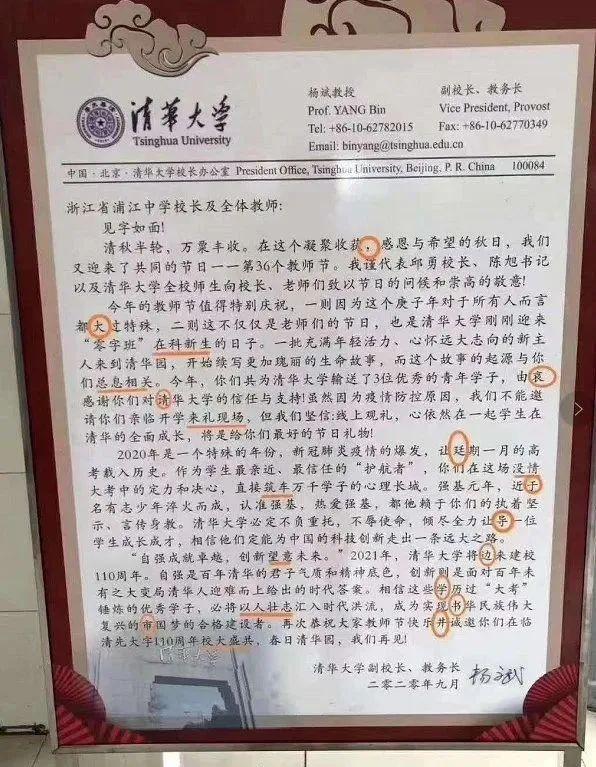 清华大学
Tsinghua University
杨斌教授
Prof. YANG Bin
Tel: +86-10-62782015
Email: binyang@tsinghua.edu.cn
副校长、教务长
Vice President, Provost
Fax: +86-10-62770349
中国·北京·清华大学校长办公室 President Office, Tsinghua University, Beijing, P. R. China 100084
浙江省浦江中学校长及全体教师:
见字如面!
清秋半轮，万粟丰收。在这个凝聚收获，感恩与希望的秋日，我们
又迎来了共同的节日一一第36个教师节。我谨代表邱勇校长、陈旭书记
以及清华大学全校师生向校长、老师们致以节日的问候和崇高的敬意!
今年的教师节值得特别庆祝，一则因为这个庚子年对于所有人而言
都大过特殊，二则这不仅仅是老师们的节日，也是清华大学刚刚迎来
“零字班”在科新生的日子。一批充满年轻活力、心怀远大志向的新主
人来到清华园，开始续写更加瑰丽的生命故事，而这个故事的起源与你
们总息相关。今年，你们共为清华大学输送了3位优秀的青年学子，由哀
感谢你们对清华大学的信任与支持!虽然因为疫情防控原因，我们不能邀
请你们亲临开学来礼现场，但我们坚信:线上观礼，心依然在一起学生在
清华的全面成长，将是给你们最好的节日礼物!
2020年是一个特殊的年份，新冠肺炎疫情的爆发，让廷期一月的高
考载入历史。作为学生最亲近、最信任的“护航者”，你们在这场没情
大考中的定力和决心，直接筑车万千学子的心理长城。强基元年，近于
名有志少年淬火而成，认准强基，热爱强基，都他赖于你们的执着坚
示、言传身教。清华大学必定不负重托，不辱使命，倾尽全力让导一位
学生成长成才，相信他们定能为中国的科技创新走出一条远大之路。
“自强成就卓越，创新望意未来。”2021年，清华大学将边来建校
110周年。自强是百年清华的君子气质和精神底色，创新则是面对百年未
有之大变局清华人迎难而上给出的时代答案。相信这些学历过“大考”
锤炼的优秀学子，必将以人壮志汇入时代洪流，成为实现书华民族伟大
复兴的市国梦的合格建设者。再次恭祝大家教师节快乐井诚邀你们在临
清先大字110周年校大盛共，春日清华园，我们再见!
清华大学副校长、教务长
二零二零年九月
杨斌
清华大学